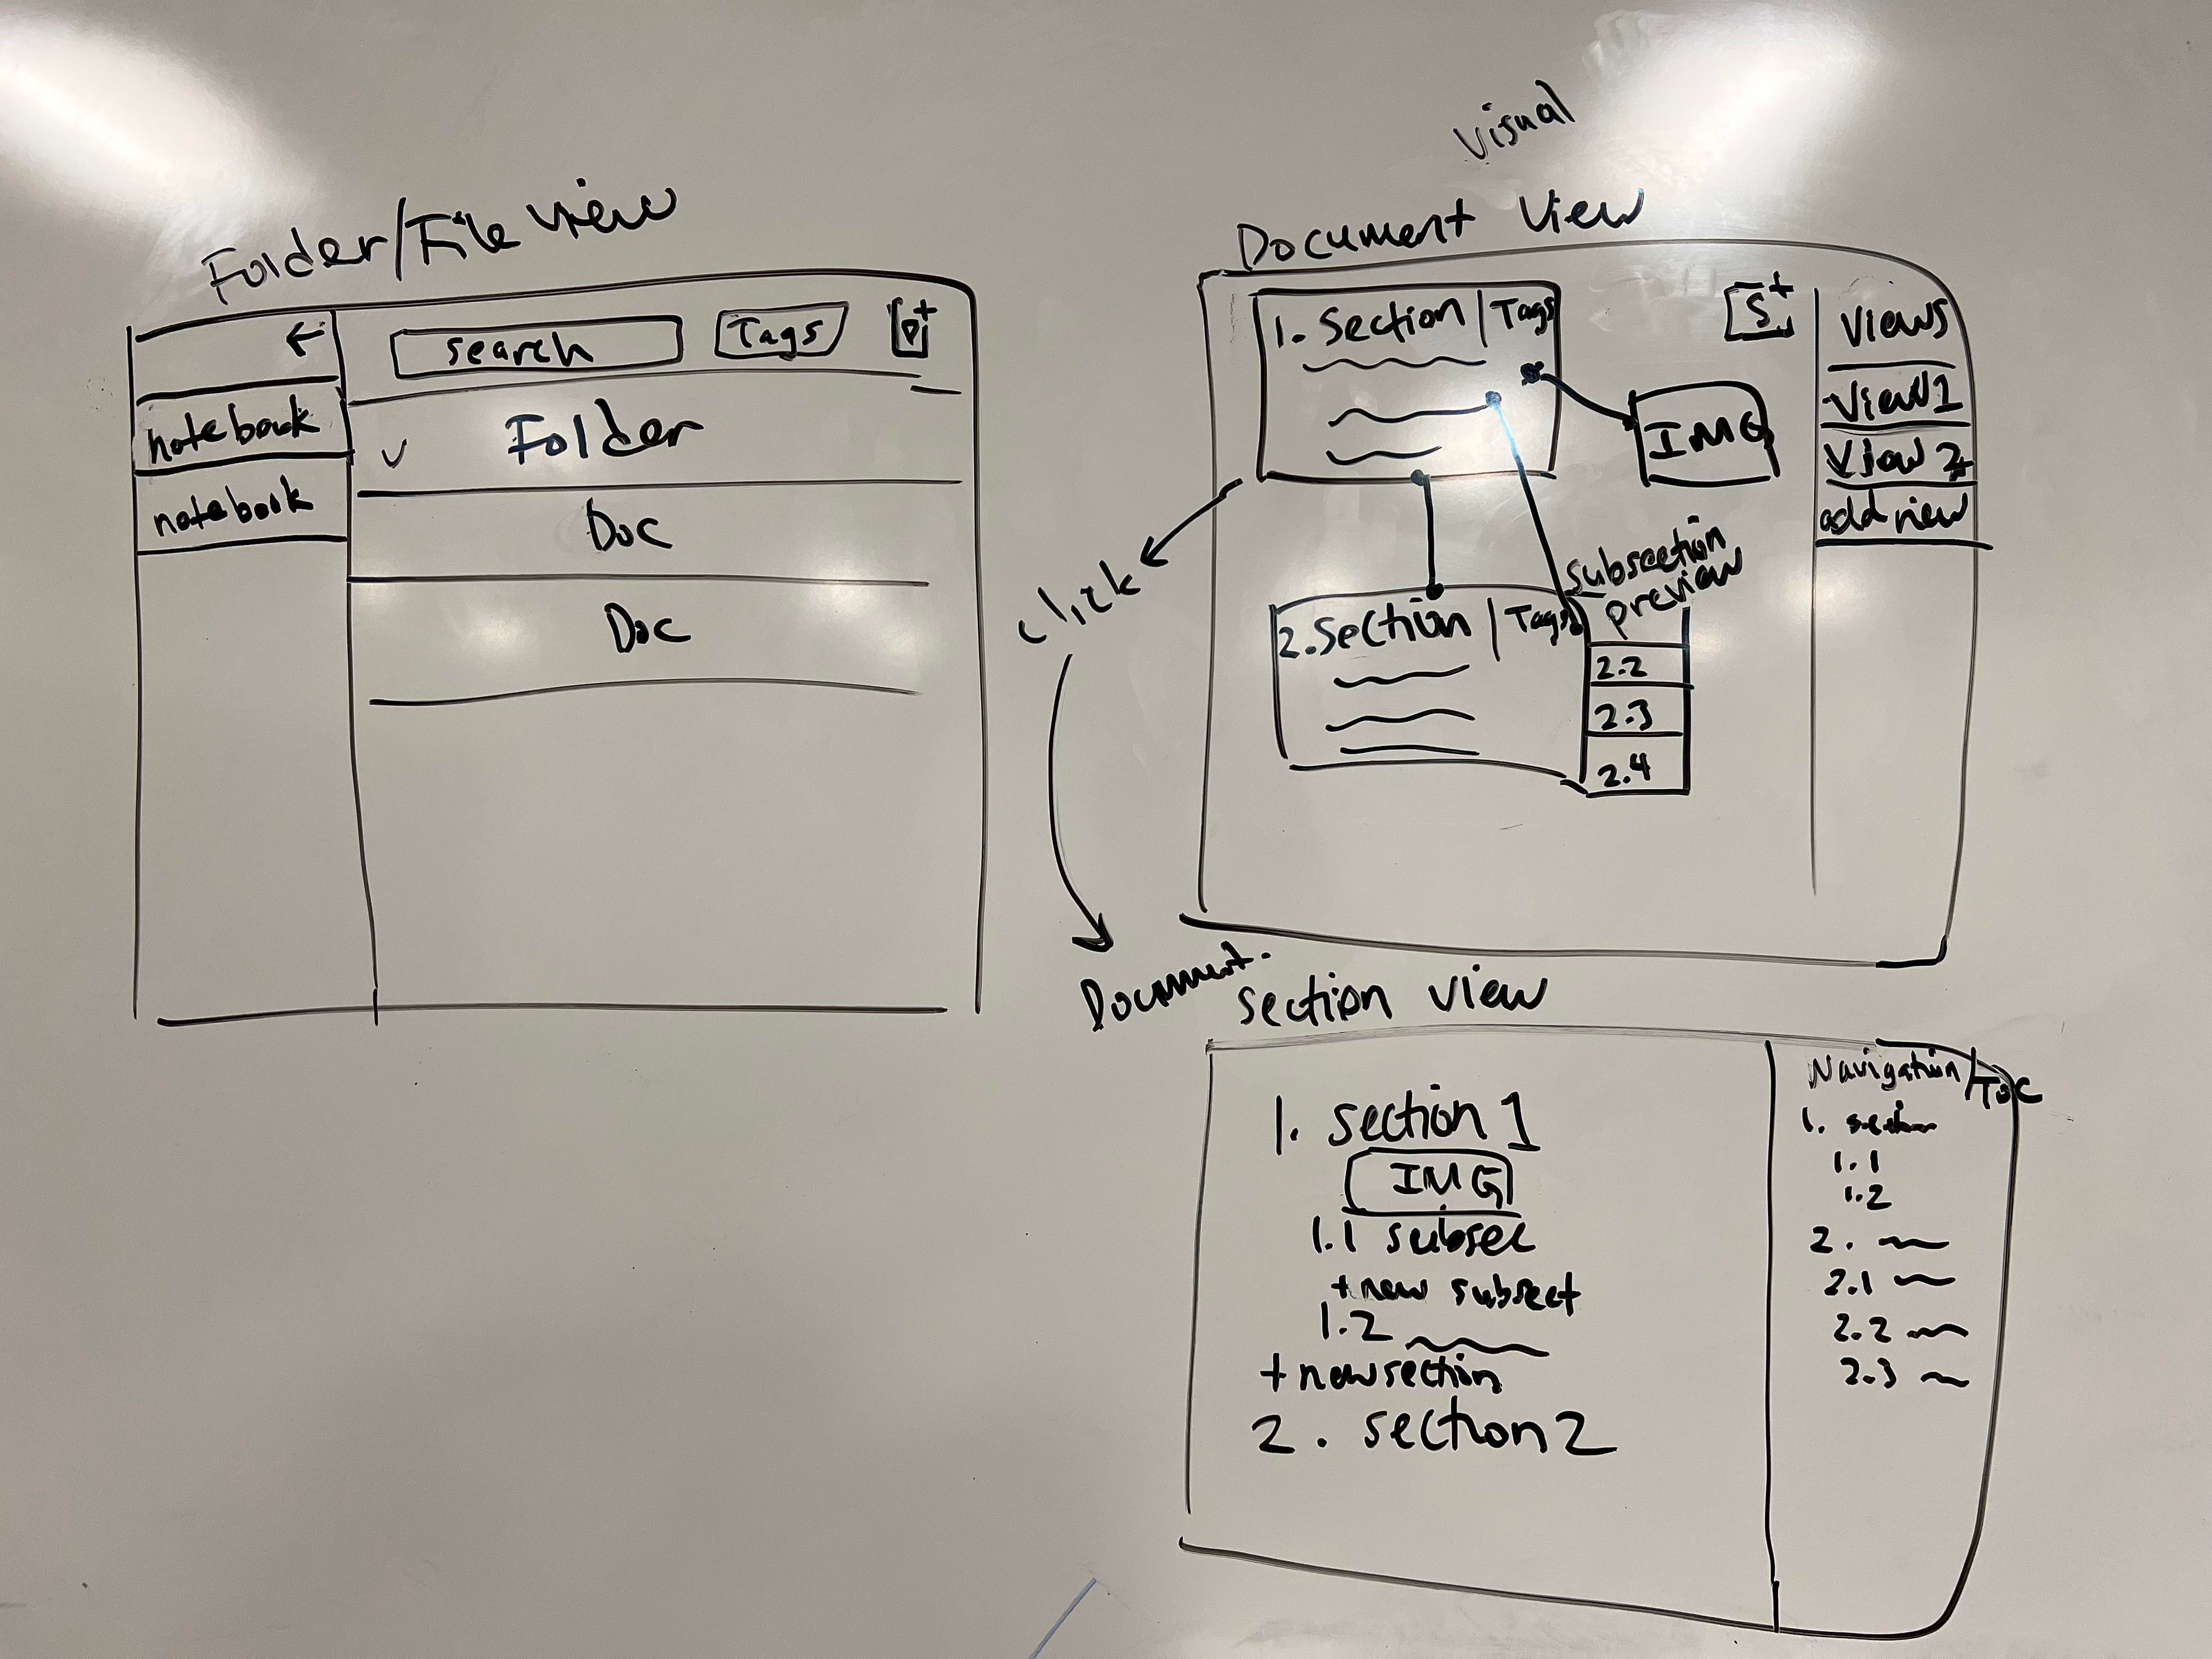 Folder/File view
←
search
Tags
D+
notebook
notebook
✓ Folder
Doc
Doc
Visual
Document View
1. Section | Tags
S+
IMG
Views
View 1
View 2
add view
click
Subsection
preview
2. Section | Tags
2.2
2.3
2.4
Document.
section view
1. section 1
IMG
1.1 subsec
+new subsect
1.2
+ new section
2. section 2
Navigation/TOC
1. section
1.1
1.2
2.
2.1
2.2
2.3